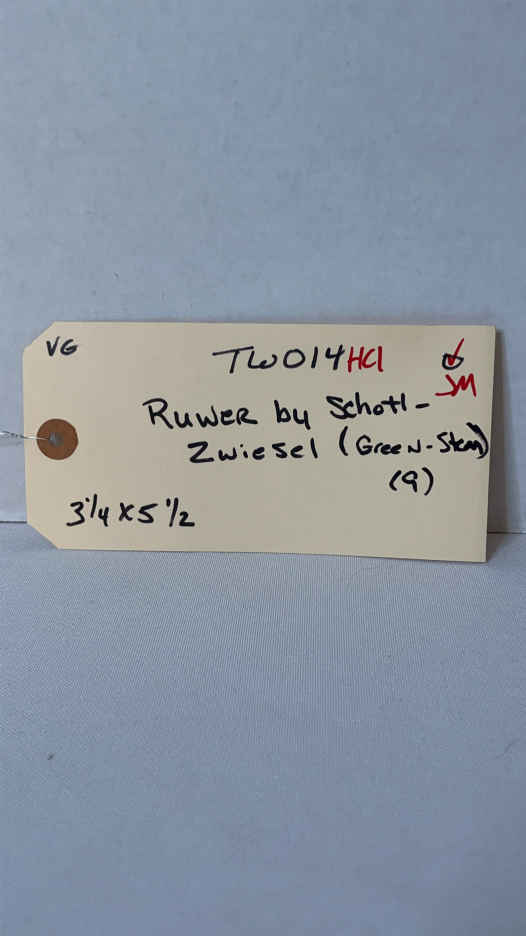 VG
TW014HCl
JM
Ruwer by Schott-
Zwiesel (Green-Stem)
(9)
3 1/4 x 5 1/2